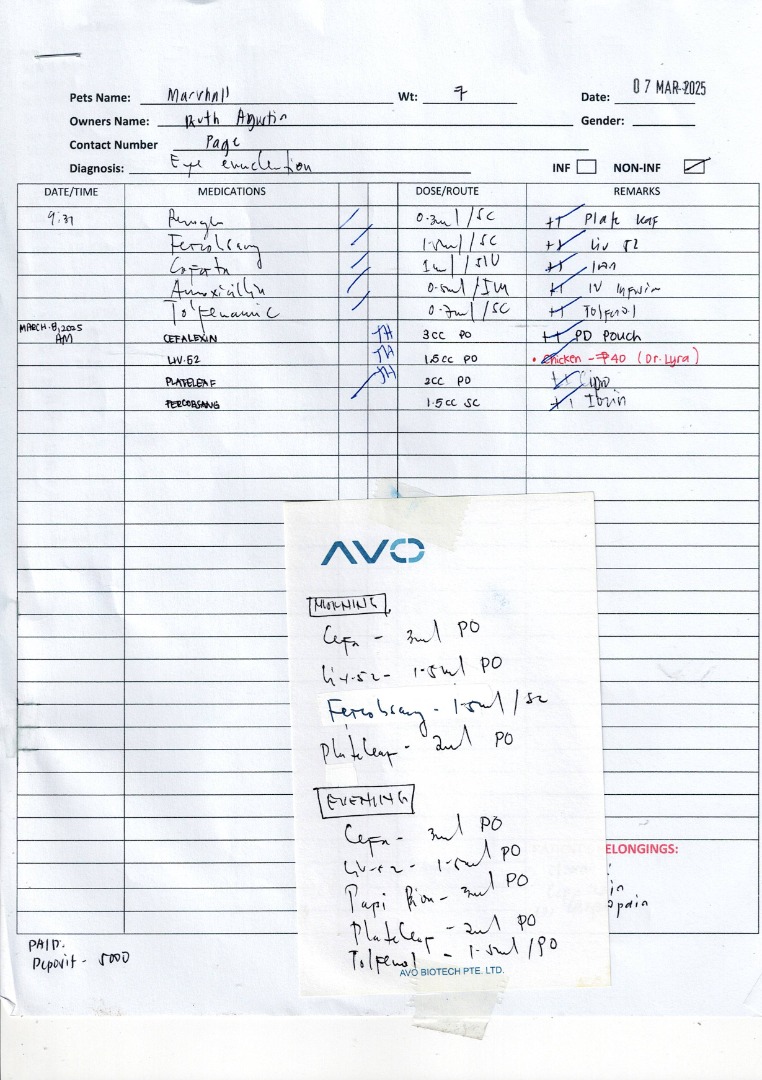 Pets Name: Marshall Wt: 7 Date: 07 MAR 2025
Owners Name: Ruth Agustin Gender:
Contact Number Page
Diagnosis: Eye enucletion INF NON-INF
DATE/TIME MEDICATIONS DOSE/ROUTE REMARKS
9:37 0.3ml/SC ++ Plate leaf
Fercobsang 1.5ml/SC ++ Liv 52
1ml/SIV ++
Amoxicillin 0.5ml/IM ++ IV infusion
Tolfenamic 0.7ml/SC ++ Tolfenol
MARCH.8,2025 AM CEFALEXIN TH 3cc PO ++ PD Pouch
LIV-52 TH 1.5cc PO • Chicken - ₱40 (Dr. Lyra)
PLATELEAF TH 2cc PO ++ Cipro
FERCOBSANG 1.5cc SC ++
AVO
MORNING
Cefa - 3ml PO
Liv-52 - 1.5ml PO
Fercobsang - 1.5ml/SC
Plateleaf - 2ml PO
EVENING
Cefa - 3ml PO
Liv-52 - 1.5ml PO
Papi Bion - 3ml PO
Plateleaf - 2ml PO
Tolfenol - 1.5ml/PO
AVO BIOTECH PTE. LTD.
ELONGINGS:
in
pain
PAID.
Deposit - 5000